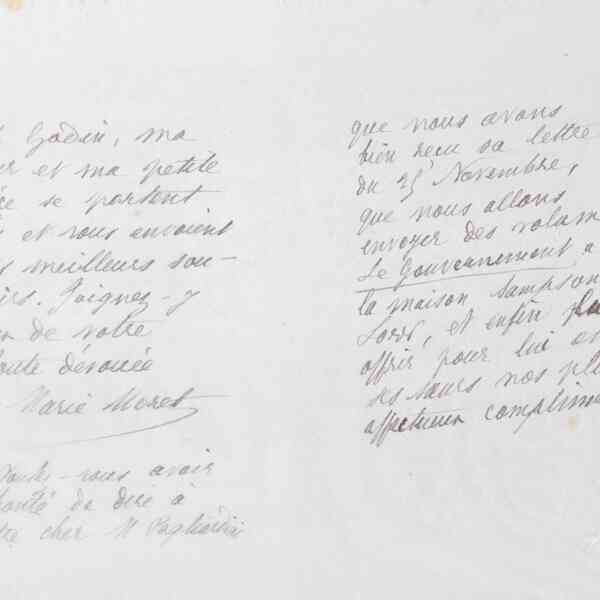 Godin, ma
et ma petite
se portent
et vous envoient
meilleurs sou-
irs. Joignez-y
de votre
toute dévouée
Marie Moret
Voulez-vous avoir
bonté de dire à
cher M Pagliardini
que nous avons
bien reçu sa lettre
du 25 Novembre,
que nous allons
envoyer des volum
Le Gouvernement a
la maison Sampson
et enfin
offrir pour lui et
ses sœurs nos plus
affectueux complime